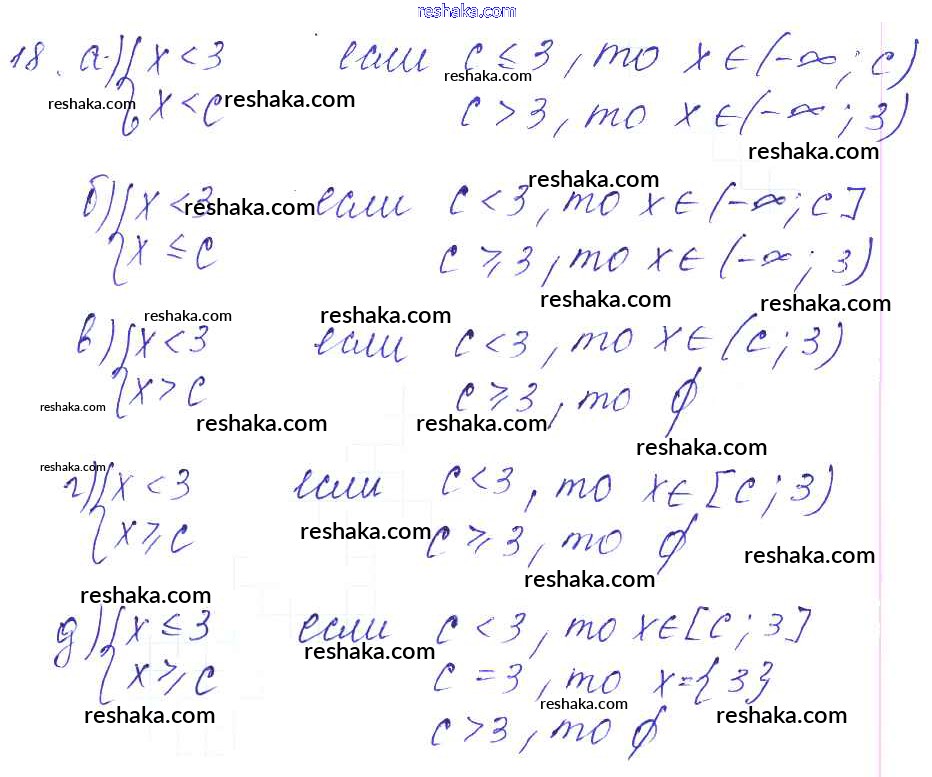 reshaka.com
18. а) { x < 3 если c ≤ 3, то x ∈ (-∞; c)
reshaka.com reshaka.com reshaka.com
x < c c > 3, то x ∈ (-∞; 3)
reshaka.com
reshaka.com
б) { x < 3 если c < 3, то x ∈ (-∞; c]
reshaka.com
x ≤ c c ⩾ 3, то x ∈ (-∞; 3)
reshaka.com reshaka.com
reshaka.com reshaka.com
в) { x < 3 если c < 3, то x ∈ (c; 3)
x > c c ⩾ 3, то ∅
reshaka.com
reshaka.com reshaka.com
reshaka.com
reshaka.com
г) { x < 3 если c < 3, то x ∈ [c; 3)
x ⩾ c c ⩾ 3, то ∅
reshaka.com
reshaka.com
reshaka.com
reshaka.com
д) { x ≤ 3 если c < 3, то x ∈ [c; 3]
reshaka.com
x ⩾ c c = 3, то x = {3}
reshaka.com
reshaka.com reshaka.com
c > 3, то ∅